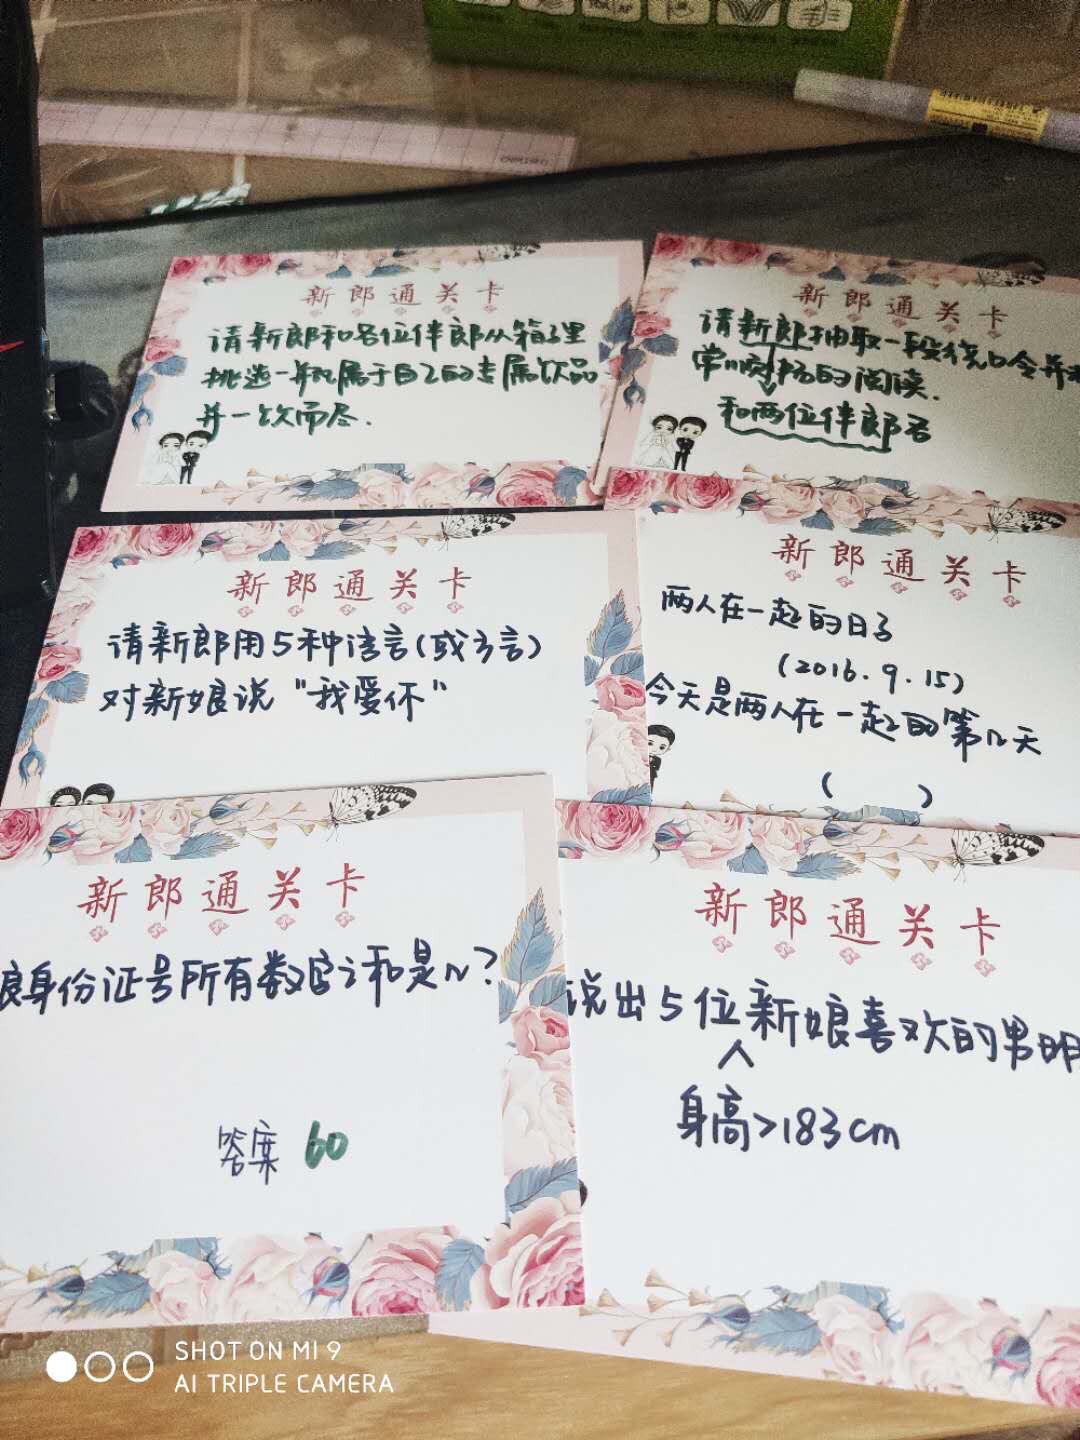 新郎通关卡
请新郎和各位伴郎从箱子里
挑选一并瓶属于自己的专属饮品
并一饮而尽.
新郎通关卡
请新郎抽取一段绕口令并
常川剧杨的阅读.
和两位伴郎君
新郎通关卡
请新郎用5种语言(或方言)
对新娘说"我爱你"
新郎通关卡
两人在一起的日子
(2016.9.15)
今天是两人在一起的第几天
( )
新郎通关卡
身份证号所有数字之和是几?
答案 60
新郎通关卡
说出5位新娘喜欢的男明
人
身高>183cm
SHOT ON MI 9
AI TRIPLE CAMERA